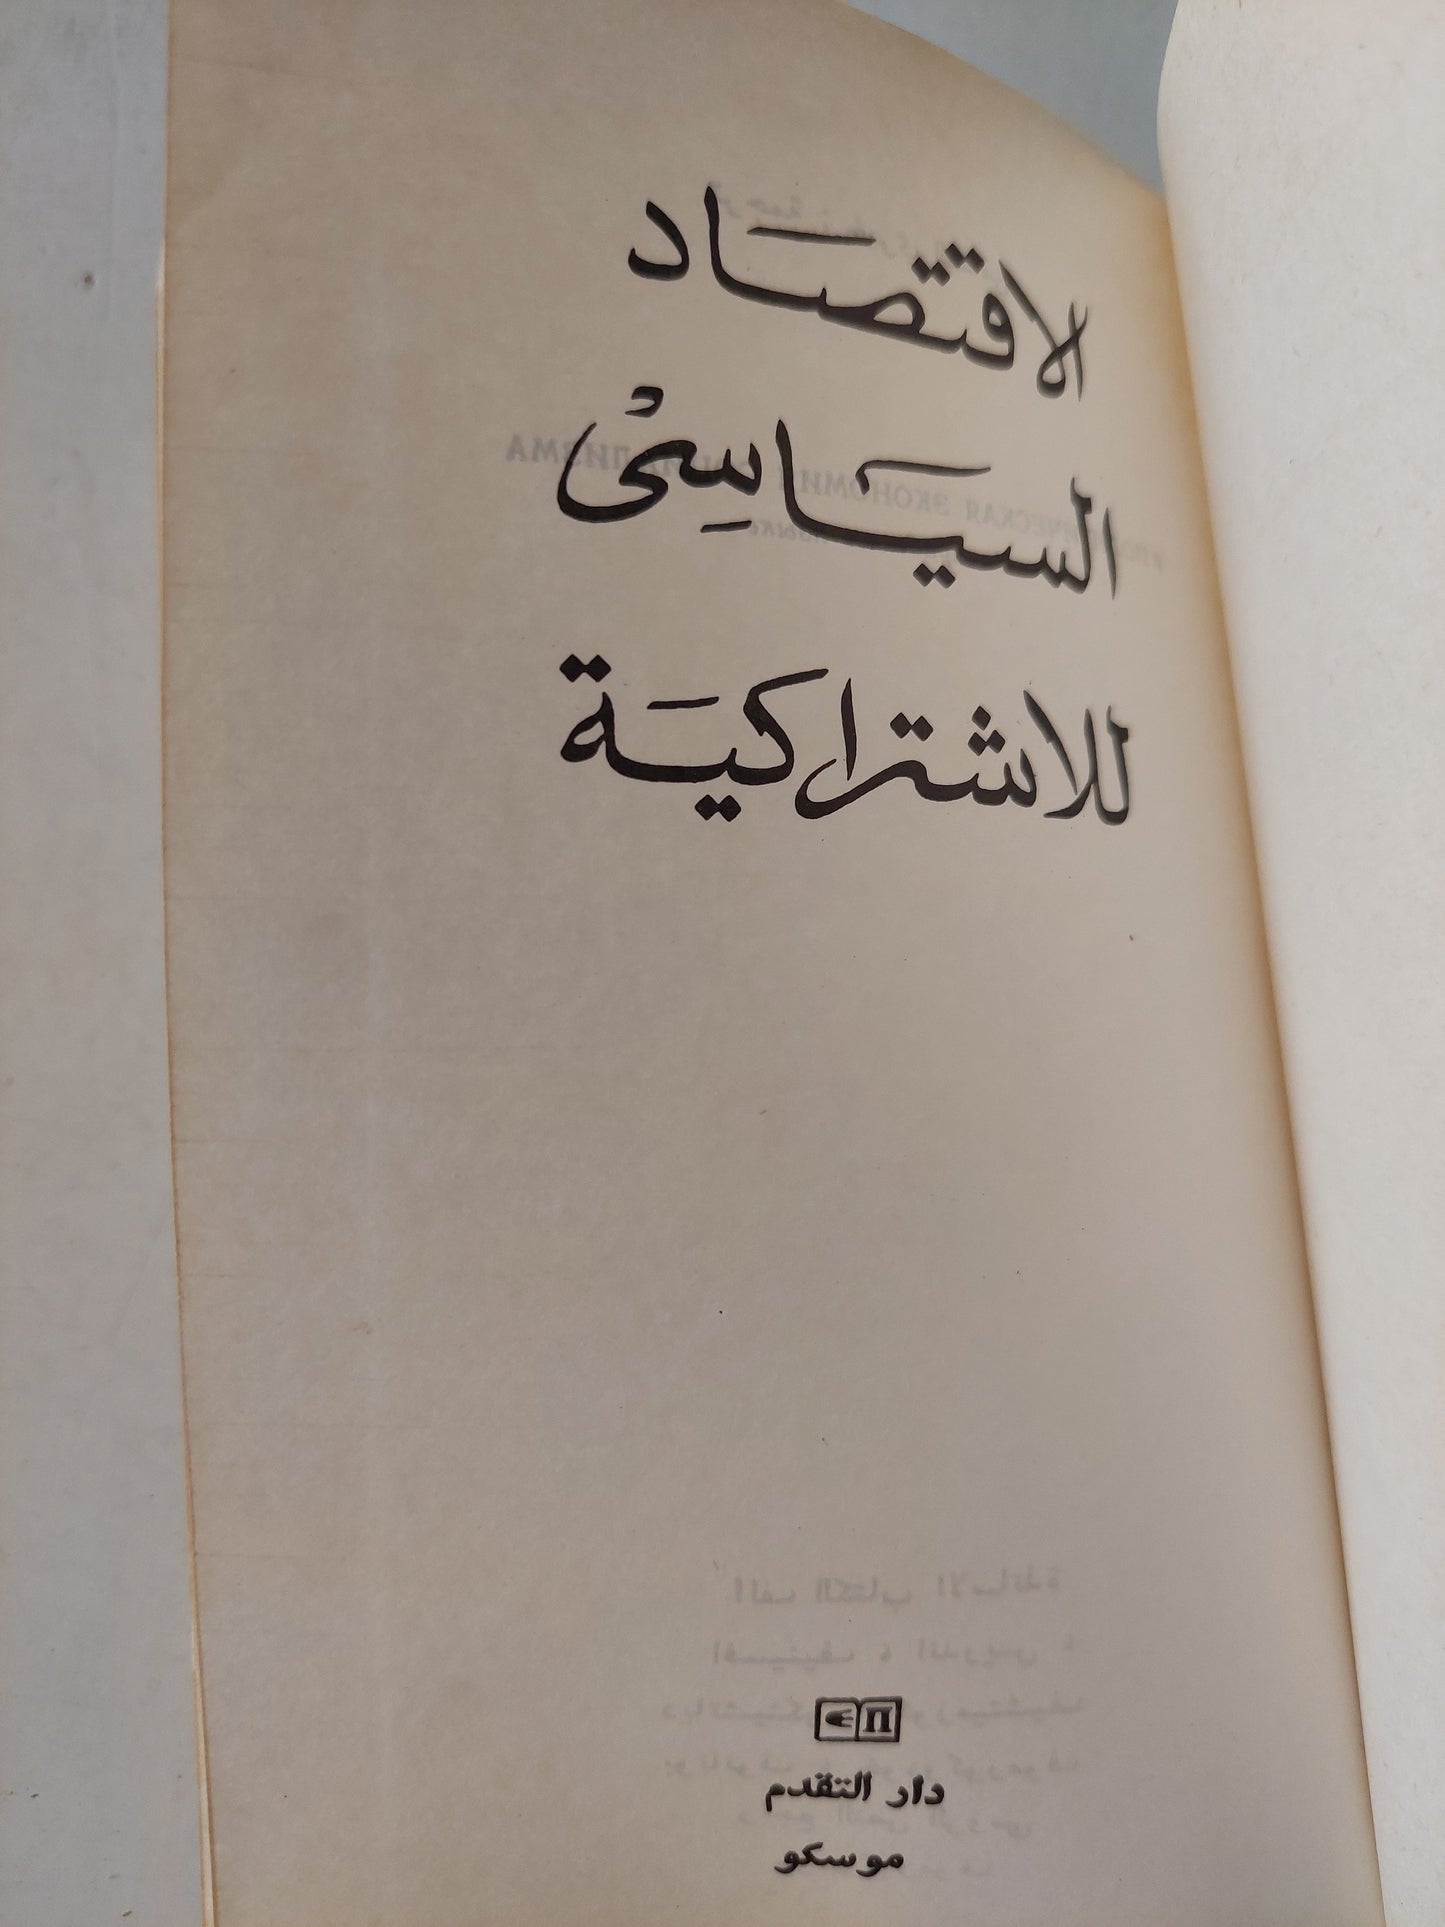 الاقتصاد
السياسى
للاشتراكية
П
دار التقدم
موسكو